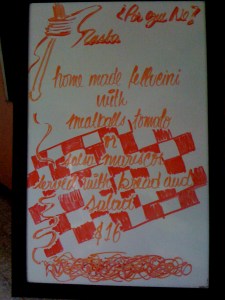 ¿Por que No?
Pasta
home made fettucini
with
meatballs tomato
or
salsa mariscos
served with bread and
salad
$16